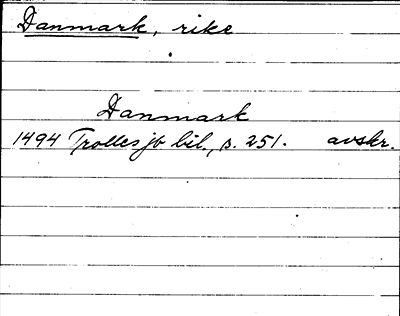 Danmark, rike
Danmark
1494 Trolles jb bil., s. 251. avskr.